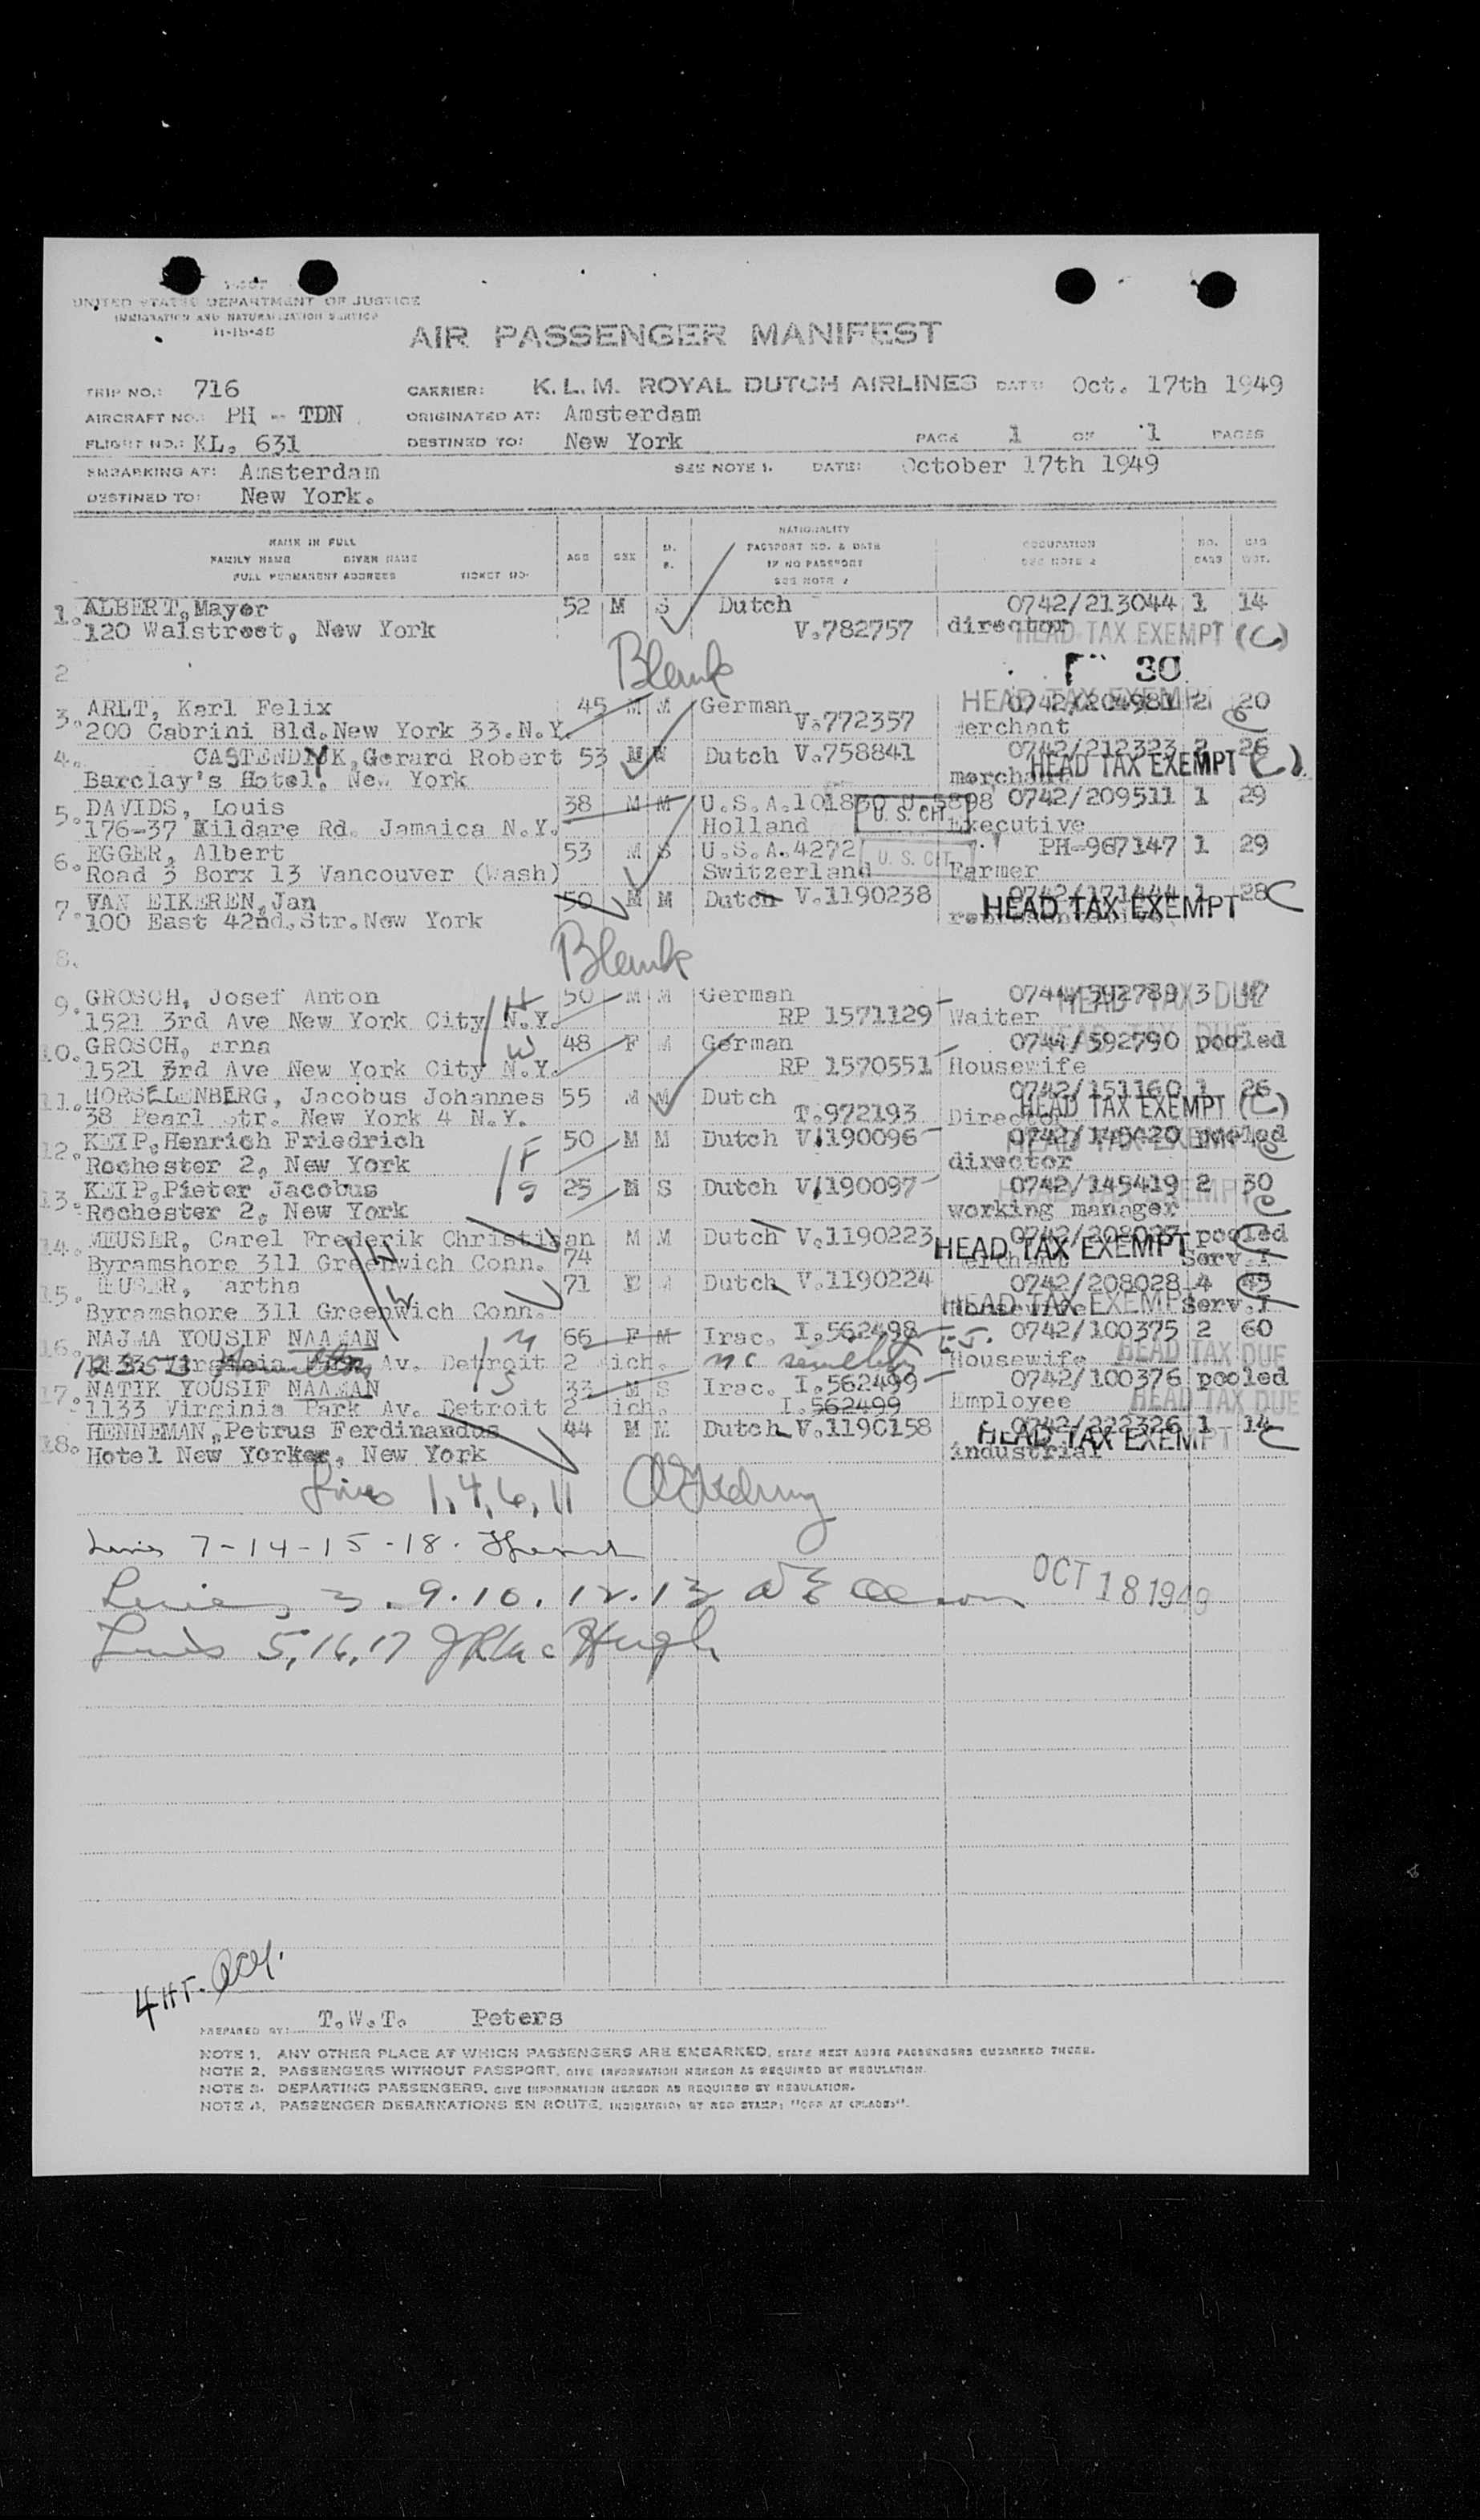 UNITED STATES DEPARTMENT OF JUSTICE
IMMIGRATION AND NATURALIZATION SERVICE
11-15-45
AIR PASSENGER MANIFEST
TRIP NO.: 716 CARRIER: K.L.M. ROYAL DUTCH AIRLINES DATE: Oct. 17th 1949
AIRCRAFT NO.: PH - TDN ORIGINATED AT: Amsterdam
FLIGHT NO.: KL. 631 DESTINED TO: New York PAGE 1 OF 1 PAGES
EMBARKING AT: Amsterdam SEE NOTE 1. DATE: October 17th 1949
DESTINED TO: New York.
NAME IN FULL
FAMILY NAME GIVEN NAME
FULL PERMANENT ADDRESS TICKET NO.
AGE SEX M. S.
NATIONALITY
PASSPORT NO. & DATE
IF NO PASSPORT
SEE NOTE 2
OCCUPATION
SEE NOTE 2
NO. BAGS BAG WGT.
1. ALBERT, Mayer 52 M S Dutch 0742/213044 1 14
120 Walstreet, New York V.782757 director HEAD TAX EXEMPT (C)
2 Blank 30
3. ARLT, Karl Felix 45 M M German 0742/204981 2 20
200 Cabrini Bld. New York 33. N.Y. V.772357 merchant HEAD TAX EXEMPT C
4. CASTENDYK, Gerard Robert 53 M Dutch V.758841 0742/212323 2 26
Barclay's Hotel. New York merchant HEAD TAX EXEMPT (C)
5. DAVIDS, Louis 38 M M U.S.A. 101830 0742/209511 1 29
176-37 Kildare Rd. Jamaica N.Y. Holland U. S. CIT. Executive
6. EGGER, Albert 53 M S U.S.A. 4272 PH-967147 1 29
Road 3 Borx 13 Vancouver (Wash) Switzerland U. S. CIT. Farmer
7. VAN EIKEREN, Jan 50 M M Dutch V.1190238 0742/171444 1 28 C
100 East 42nd. Str. New York representative HEAD TAX EXEMPT
8. Blank
9. GROSCH, Josef Anton 50 M M German 0744/592789 3 47
1521 3rd Ave New York City N.Y. H RP 1571129 Waiter HEAD TAX DUE
10. GROSCH, Erna 48 F M German 0744/592790 pooled
1521 3rd Ave New York City N.Y. W RP 1570551 Housewife HEAD TAX DUE
11. HORSELENBERG, Jacobus Johannes 55 M M Dutch 0742/151160 1 26
38 Pearl Str. New York 4 N.Y. T.972193 Director HEAD TAX EXEMPT (C)
12. KEIP, Henrich Friedrich F 50 M M Dutch V/190096 pooled
Rochester 2, New York director HEAD TAX EXEMPT C
13. KEIP, Pieter Jacobus S 25 M S Dutch V/190097 0742/145419 2 30
Rochester 2, New York working manager HEAD TAX EXEMPT C
14. MEUSER, Carel Frederik Christiaan M M Dutch V.1190223 0742/208027 pooled
Byramshore 311 Greenwich Conn. H 74 merchant HEAD TAX EXEMPT Serv.I
15. MEUSER, Martha 71 Dutch V.1190224 0742/208028 4 45
Byramshore 311 Greenwich Conn. W Housewife HEAD TAX EXEMPT Serv.I
16. NAJMA YOUSIF NAAMAN M 66 F M Irac. I.562498 0742/100375 2 60
Av. Detroit 2 Mich. Housewife HEAD TAX DUE
17. NATIK YOUSIF NAAMAN S 33 M S Irac. I.562499 0742/100376 pooled
1133 Virginia Park Av. Detroit 2 Mich. I.562499 Employee HEAD TAX DUE
18. HENNEMAN, Petrus Ferdinandus 44 M M Dutch V.1190158 0742/222326 1 14
Hotel New Yorker, New York industrial HEAD TAX EXEMPT C
Lines 1, 4, 6, 11
Lines 7-14-15-18.
Lines 3. 9. 10. 12. 13 OCT 18 1949
Lines 5, 16, 17
4 HT.
PREPARED BY: T.W.T. Peters
NOTE 1. ANY OTHER PLACE AT WHICH PASSENGERS ARE EMBARKED, STATE NEXT ABOVE PASSENGERS EMBARKED THERE.
NOTE 2. PASSENGERS WITHOUT PASSPORT, GIVE INFORMATION HEREON AS REQUIRED BY REGULATION.
NOTE 3. DEPARTING PASSENGERS, GIVE INFORMATION HEREON AS REQUIRED BY REGULATION.
NOTE 4. PASSENGER DEBARKATIONS EN ROUTE, INDICATED BY RED STAMP: "OFF AT (PLACE)".